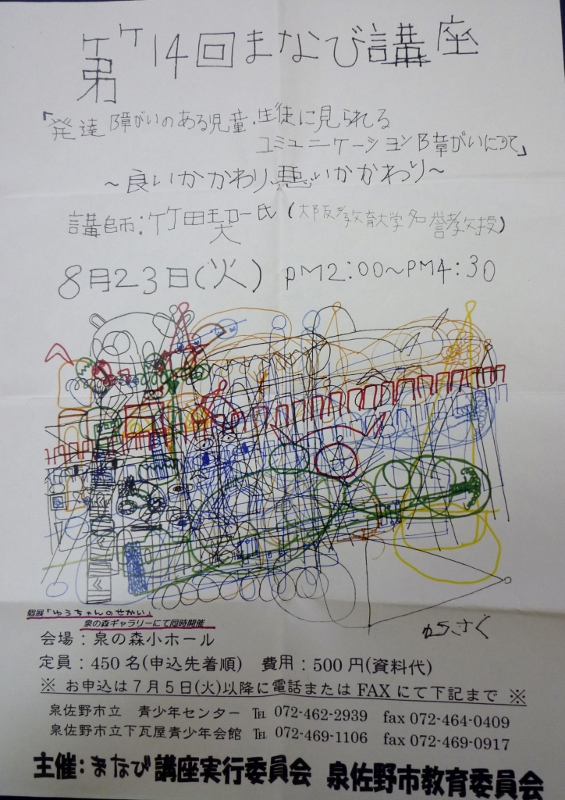 第14回まなび講座
「発達障がいのある児童・生徒に見られる
コミュニケーション障がいについて」
～良いかかわり、悪いかかわり～
講師：竹田契一氏（大阪教育大学名誉教授）
8月23日(火) PM2:00～PM4:30
個展「ゆうちゃんのせかい」
泉の森ギャラリーにて同時開催
会場：泉の森小ホール
定員：450名(申込先着順) 費用：500円(資料代)
※ お申込は7月5日(火)以降に電話またはFAXにて下記まで ※
泉佐野市立 青少年センター ℡ 072-462-2939 fax 072-464-0409
泉佐野市立下瓦屋青少年会館 ℡ 072-469-1106 fax 072-469-0917
主催：まなび講座実行委員会 泉佐野市教育委員会